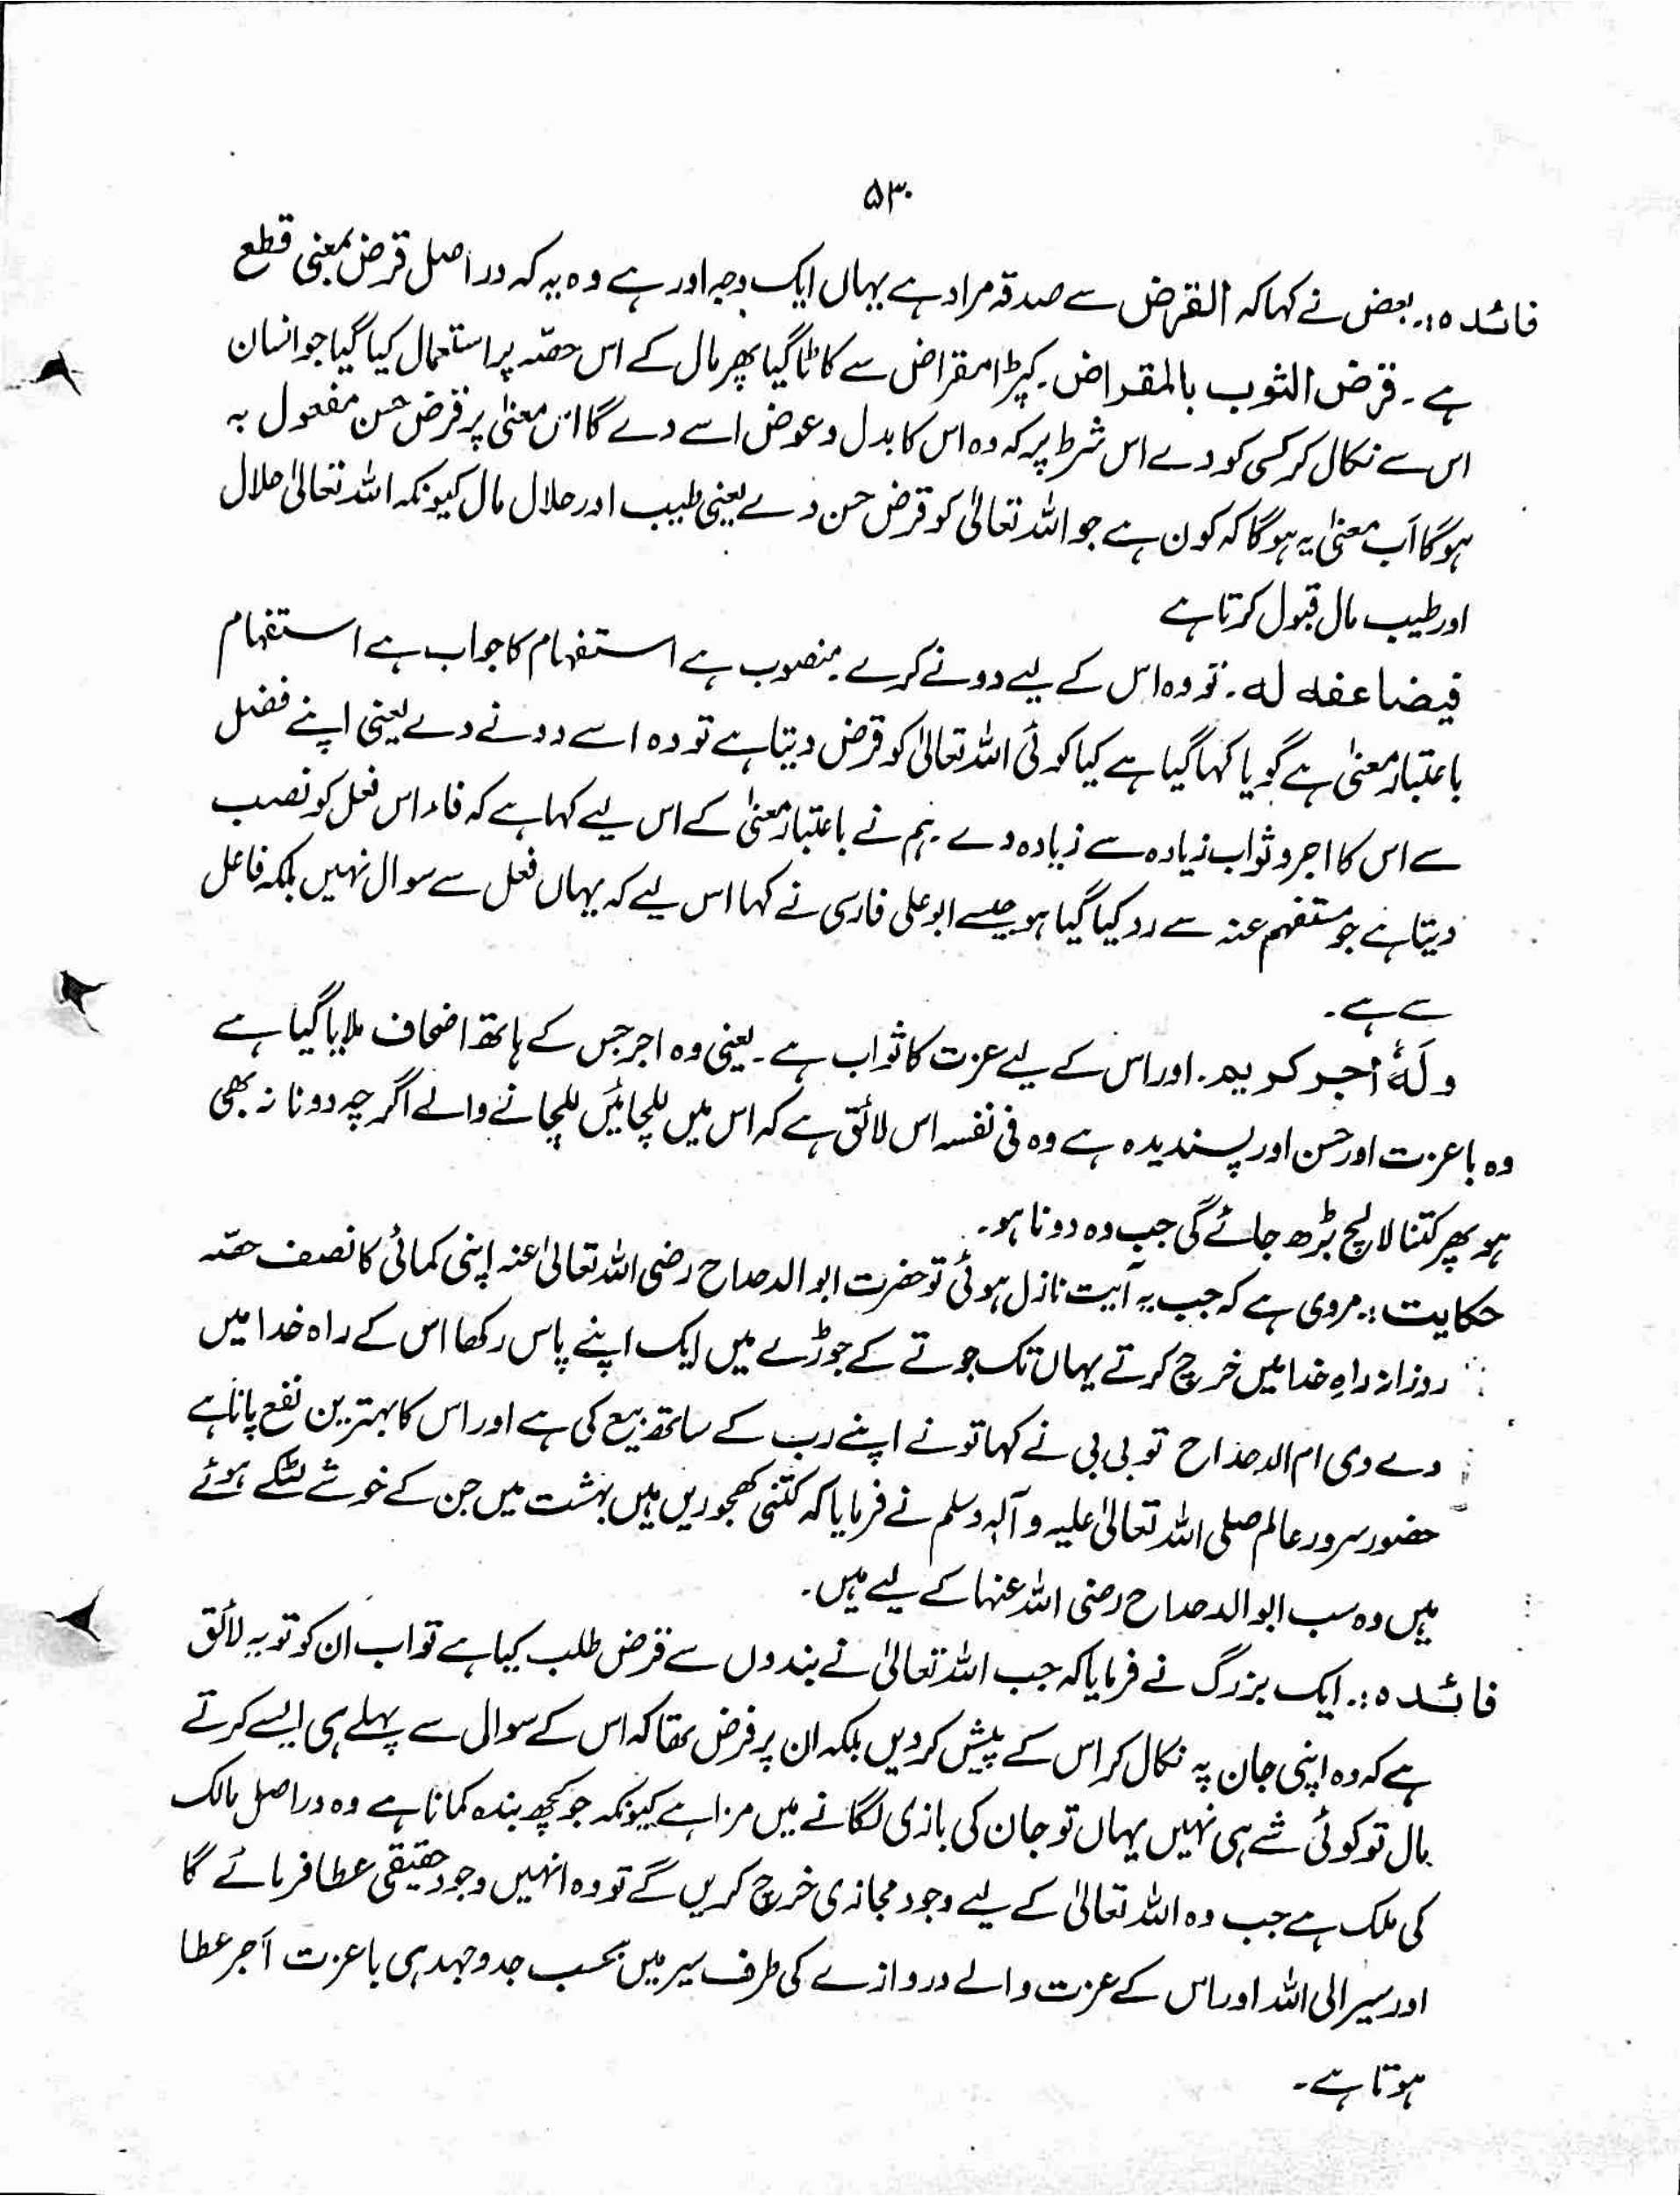 ۵۳۰
فائدہ :۔ بعض نے کہا کہ القرض سے صدقہ مراد ہے یہاں ایک وجہ اور ہے وہ یہ کہ در اصل قرض بمعنی قطع
ہے ۔ قرض الثوب بالمقراض ۔ کپڑا مقراض سے کاٹا گیا پھر مال کے اس حصّہ پر استعمال کیا گیا جو انسان
اس سے نکال کر کسی کو دے اس شرط پر کہ وہ اس کا بدل و عوض اسے دے گا اس معنیٰ پر قرض حسن مفعول بہ
ہو گا اَب معنیٰ یہ ہو گا کہ کون ہے جو اللہ تعالیٰ کو قرض حسن دے یعنی طیب اور حلال مال کیونکہ اللہ تعالیٰ حلال
اور طیب مال قبول کرتا ہے
فیضاعفہ لہ ۔ تو وہ اس کے لیے دونے کرے ۔ منصوب ہے استفہام کا جواب ہے استفہام
باعتبار معنیٰ ہے گویا کہا گیا ہے کیا کوئی اللہ تعالیٰ کو قرض دیتا ہے تو وہ اسے دونے دے یعنی اپنے فضل
سے اس کا اجر و ثواب زیادہ سے زیادہ دے ۔ ہم نے باعتبار معنیٰ کے اس لیے کہا ہے کہ فاء اس فعل کو نصب
دیتا ہے جو مستفہم عنہ سے رد کیا گیا ہو جیسے ابو علی فارسی نے کہا اس لیے کہ یہاں فعل سے سوال نہیں بلکہ فاعل
سے ہے ۔
وَلَہٗ اَجر کریم ۔ اور اس کے لیے عزت کا ثواب ہے ۔ یعنی وہ اجر جس کے ہاتھ اضحاف ملایا گیا ہے
وہ باعزت اور حسن اور پسندیدہ ہے وہ فی نفسہ اس لائق ہے کہ اس میں للچائیں للچانے والے اگرچہ دونا نہ بھی
ہو پھر کتنا لالچ بڑھ جائے گی جب وہ دونا ہو ۔
حکایت :۔ مروی ہے کہ جب یہ آیت نازل ہوئی تو حضرت ابو الدحداح رضی اللہ تعالیٰ عنہ اپنی کمائی کا نصف حصّہ
روزانہ راہِ خدا میں خرچ کرتے یہاں تک جوتے کے جوڑے میں ایک اپنے پاس رکھا اس کے راہ خدا میں
دے دی ام الدحداح تو بی بی نے کہا تو نے اپنے رب کے ساتھ بیع کی ہے اور اس کا بہترین نفع پانا ہے
حضور سرور عالم صلی اللہ تعالیٰ علیہ و آلہ وسلم نے فرمایا کہ کتنی کھجوریں ہیں بہشت میں جن کے خوشے لٹکے ہوئے
ہیں وہ سب ابو الدحداح رضی اللہ عنہا کے لیے ہیں ۔
فائدہ :۔ ایک بزرگ نے فرمایا کہ جب اللہ تعالیٰ نے بندوں سے قرض طلب کیا ہے تو اب ان کو تو یہ لائق
ہے کہ وہ اپنی جان پہ نکال کر اس کے پیش کر دیں بلکہ ان پر فرض تھا کہ اس کے سوال سے پہلے ہی ایسے کرتے
مال تو کوئی شے ہی نہیں یہاں تو جان کی بازی لگانے میں مزا ہے کیونکہ جو کچھ بندہ کماتا ہے وہ دراصل مالک
کی ملک ہے جب وہ اللہ تعالیٰ کے لیے وجود مجازی خرچ کریں گے تو وہ انہیں وجود حقیقی عطا فرمائے گا
اور سیر الی اللہ اور اس کے عزت والے دروازے کی طرف سیر میں بحسب جدوجہد ہی باعزت اَجر عطا
ہوتا ہے ۔